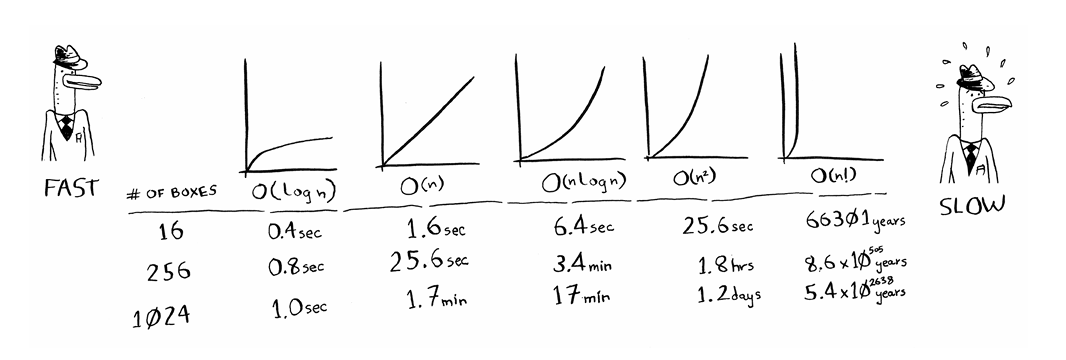 FAST
# OF BOXES O(log n) O(n) O(n log n) O(n²) O(n!)
SLOW
16 0.4sec 1.6sec 6.4sec 25.6sec 663Ø1years
256 0.8sec 25.6sec 3.4min 1.8hrs 8.6x1Ø⁵⁰⁵years
1Ø24 1.0sec 1.7min 17min 1.2days 5.4x1Ø²⁶³⁸years